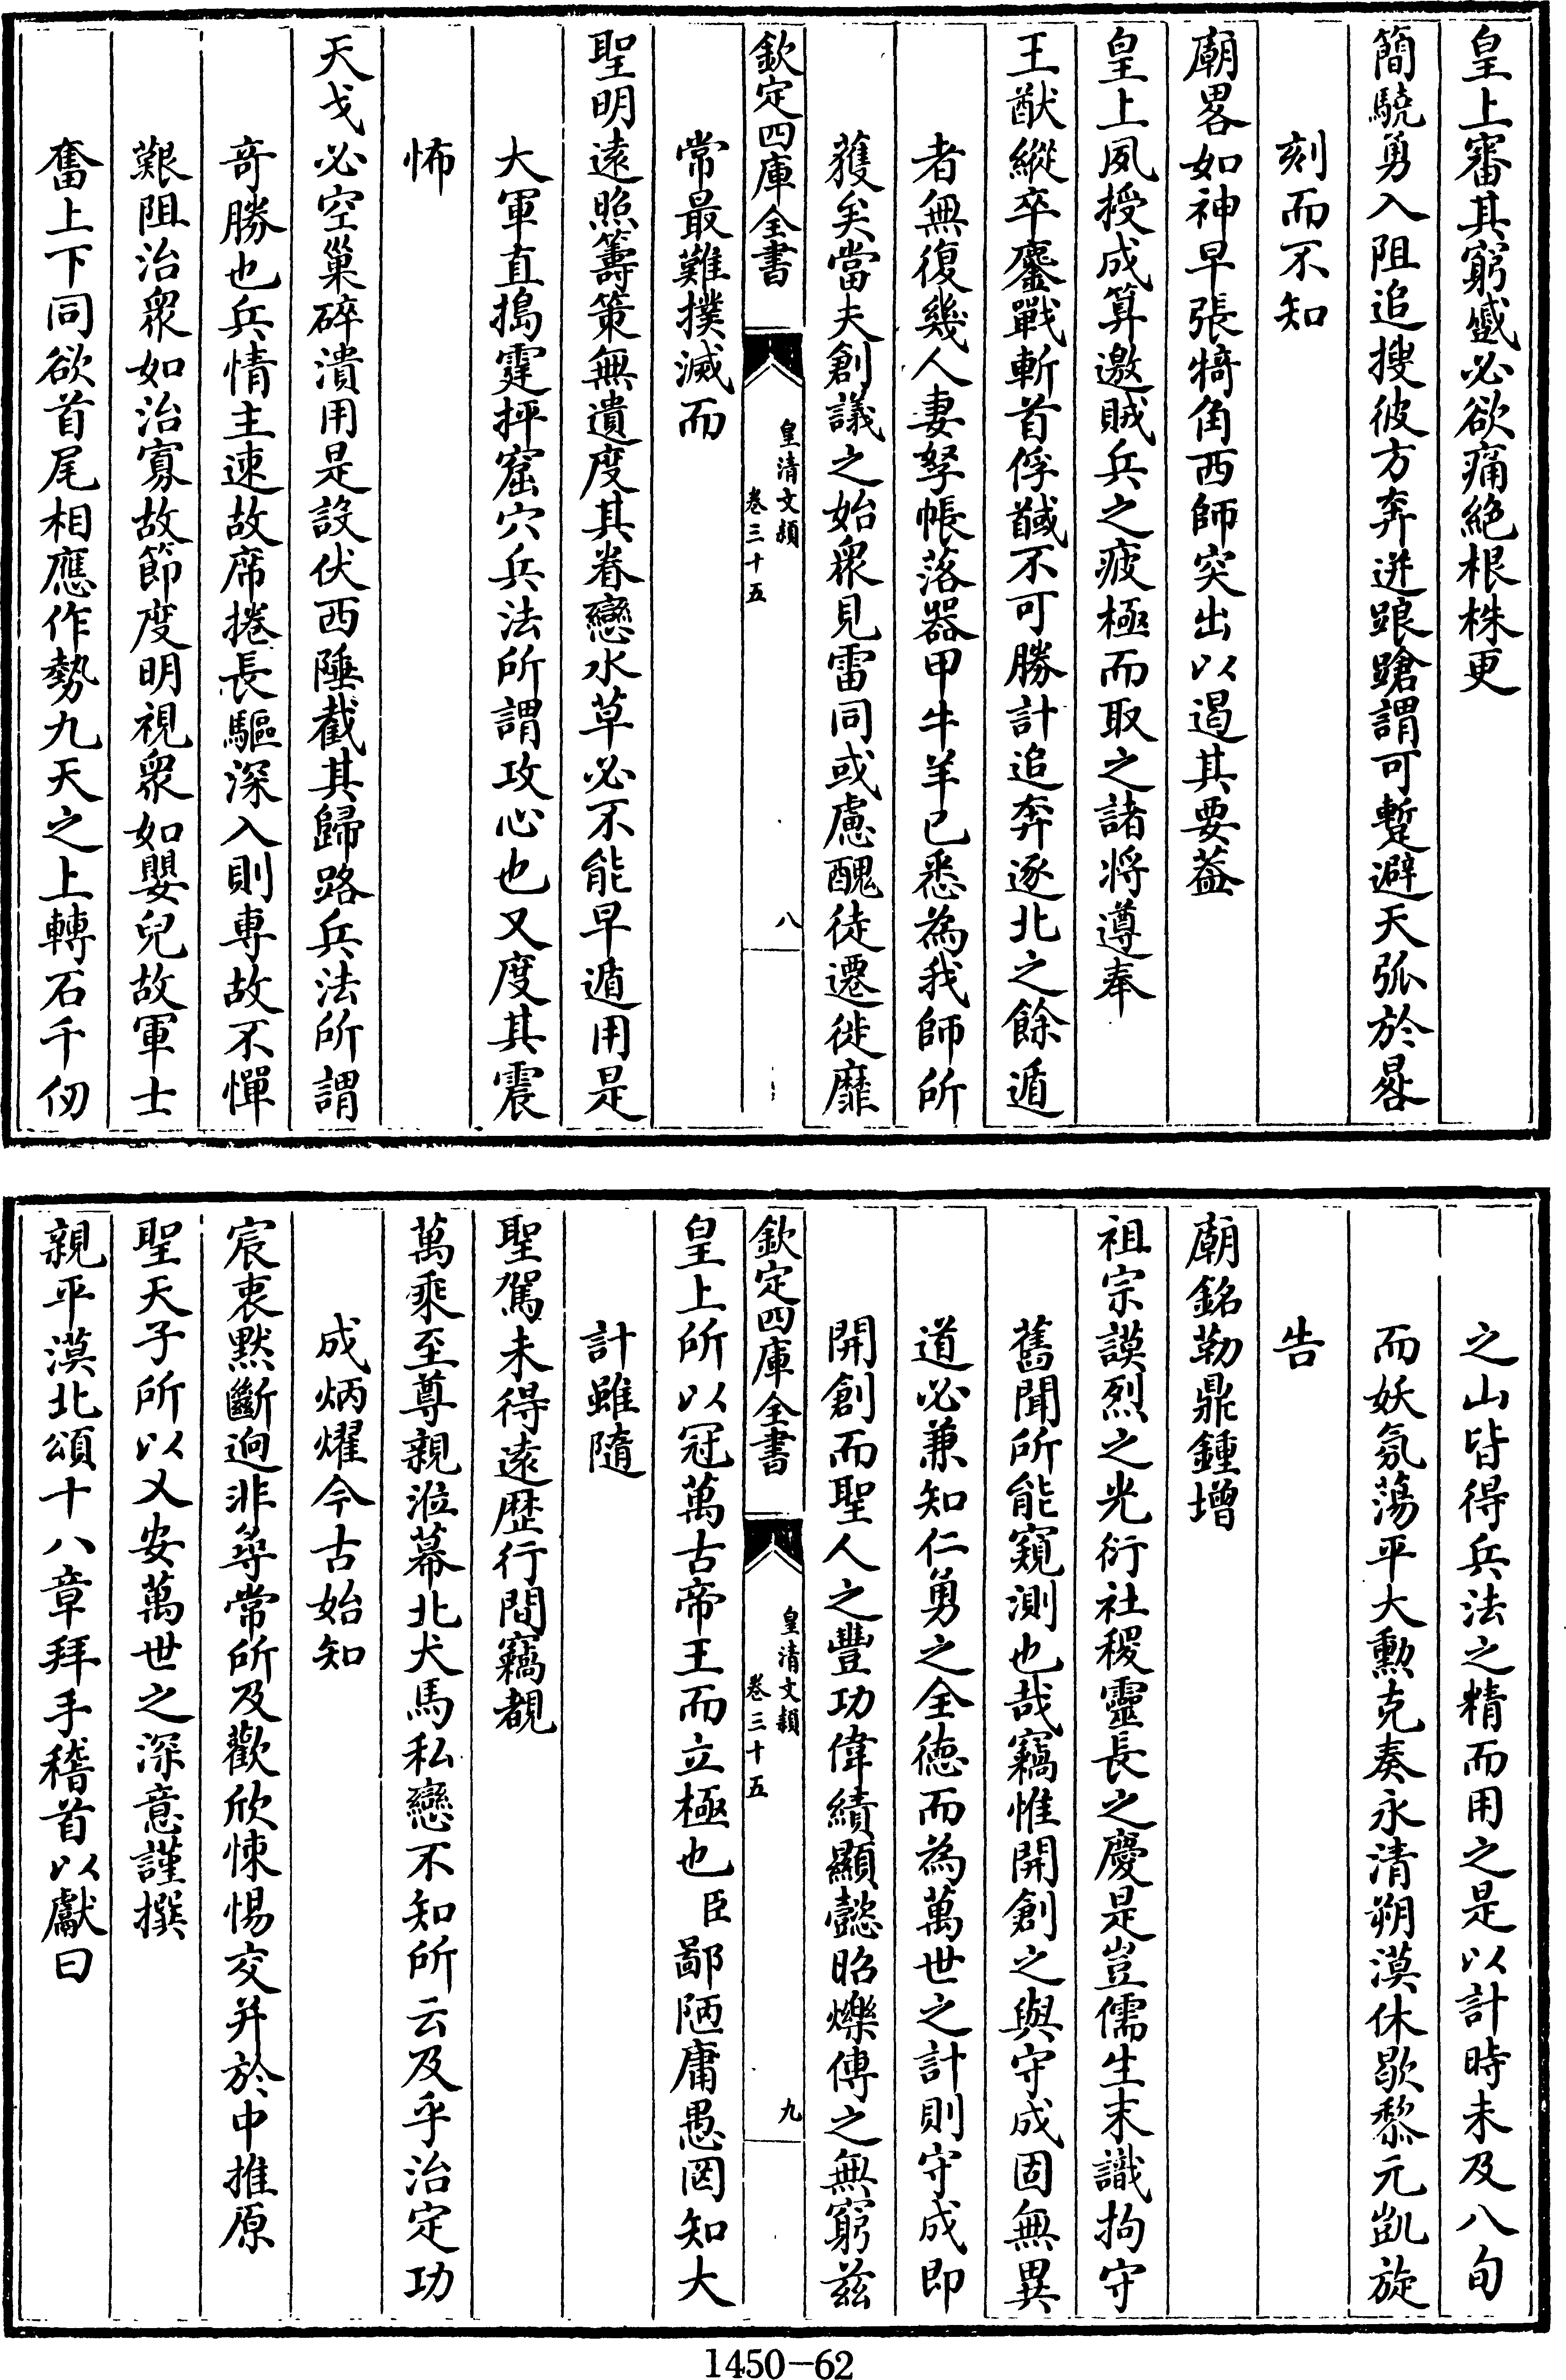 皇上審其窮蹙必欲痛絕根株更
簡驍勇入阻追搜彼方奔迸踉蹌謂可蹔避天弧於晷
刻而不知
廟畧如神早張犄角西師突出以遏其要葢
皇上夙授成算邀賊兵之疲極而取之諸將遵奉
王猷縱卒鏖戰斬首俘馘不可勝計追奔逐北之餘遁
者無復幾人妻孥帳落器甲牛羊已悉為我師所
獲矣當夫創議之始衆見雷同或慮醜徒遷徙靡
欽定四庫全書
皇清文頴
卷三十五
八
常最難撲滅而
聖明遠照籌策無遺度其眷戀水草必不能早遁用是
大軍直搗霆抨窟穴兵法所謂攻心也又度其震
怖
天戈必空巢碎潰用是設伏西陲截其歸路兵法所謂
竒勝也兵情主速故席捲長驅深入則専故不憚
艱阻治衆如治寡故節度明視衆如嬰兒故軍士
奮上下同欲首尾相應作勢九天之上轉石千仞
之山皆得兵法之精而用之是以計時未及八旬
而妖氛蕩平大勲克奏永清朔漠休歇黎元凱旋
告
廟銘勒鼎鍾增
祖宗謨烈之光衍社稷靈長之慶是豈儒生末識拘守
舊聞所能窺測也哉竊惟開創之與守成固無異
道必兼知仁勇之全德而為萬世之計則守成即
開創而聖人之豐功偉績顯懿昭爍傳之無窮茲
欽定四庫全書
皇清文頴
卷三十五
九
皇上所以冠萬古帝王而立極也臣鄙陋庸愚罔知大
計雖隨
聖駕未得遠歴行間竊覩
萬乘至尊親涖幕北犬馬私戀不知所云及乎治定功
成炳燿今古始知
宸衷黙斷迥非尋常所及歡欣悚惕交并於中推原
聖天子所以乂安萬世之深意謹撰
親平漠北頌十八章拜手稽首以獻曰
1450—62